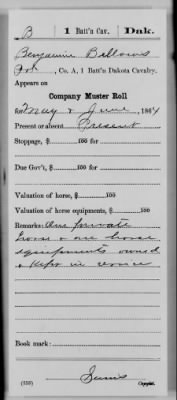 B | 1 Batt'n Cav. | Dak.
Benjamin Bellows
Pvt., Co. A, 1 Batt'n Dakota Cavalry.
Appears on
Company Muster Roll
for May & June, 1864
Present or absent Present
Stoppage, $ 100 for
Due Gov't, $ 100 for
Valuation of horse, $ 100
Valuation of horse equipments, $ 100
Remarks: One private
horse & one horse
equipments owned
& kept in service
Book mark:
(559) Copyist.